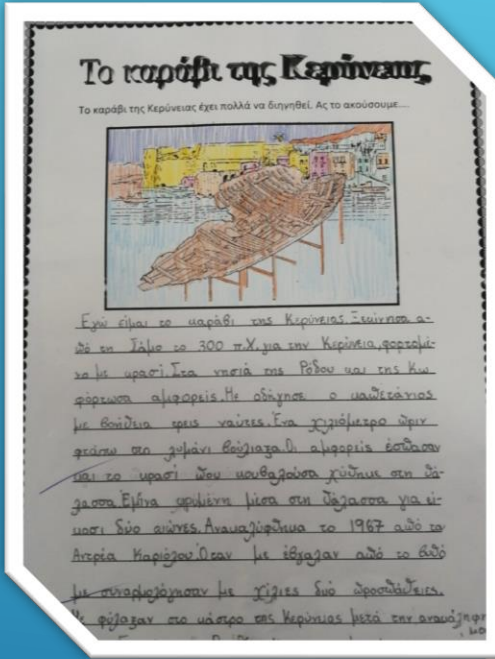 Το καράβι της Κερύνειας
Το καράβι της Κερύνειας έχει πολλά να διηγηθεί. Ας το ακούσουμε....
Εγώ είμαι το καράβι της Κερύνειας. Ξεκίνησα α-
πό τη Σάμο το 300 π.Χ. για την Κερύνεια, φορτωμέ-
νο με κρασί. Στα νησιά της Ρόδου και της Κω
φόρτωσα αμφορείς. Με οδήγησε ο καπετάνιος
με βοήθεια τρεις ναύτες. Ένα χιλιόμετρο πριν
φτάσω στη λυμάνι βούλιαξα. Οι αμφορείς έσπασαν
και το κρασί που κουβαλούσα χύθηκε στη θά-
λασσα. Έμεινα κρυμένη μέσα στη θάλασσα για εί-
κοσι δύο αιώνες. Ανακαλύφθηκα το 1967 από το
Αντρέα Καριόλου. Όταν με έβγαλαν από το βυθό
με συναρμολόγησαν με χίλιες δύο προσπάθειες.
Με φύλαξαν στο κάστρο της Κερύνειας μετά την